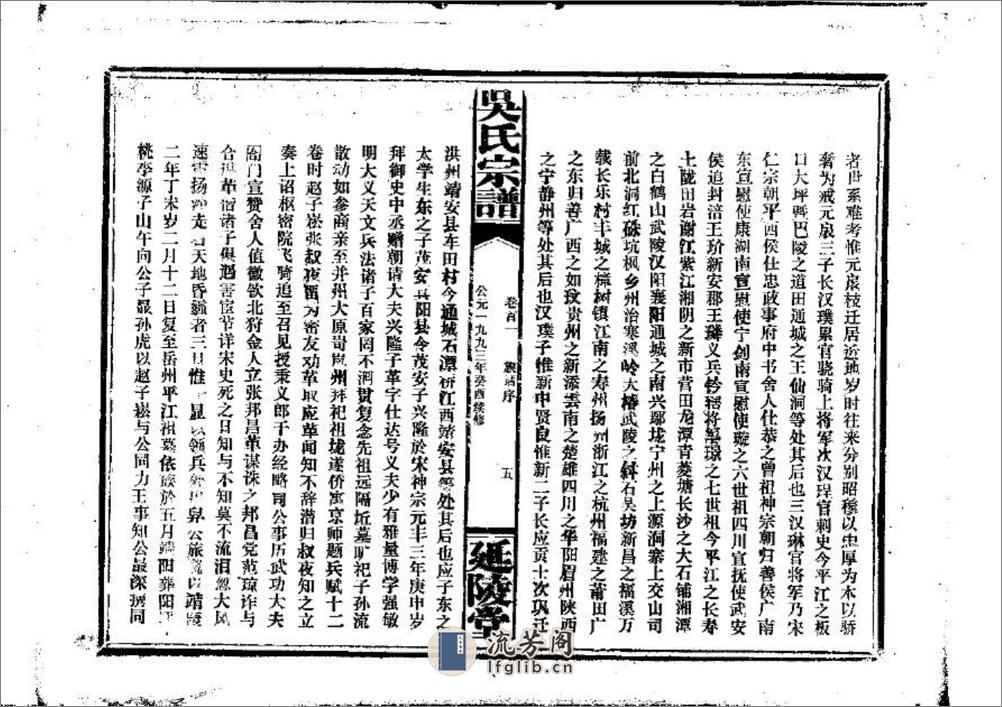 者世系难考惟元扆枝迁居运地岁时往来分别昭穆以忠厚为本以骄
奢为戒元扆三子长汉璞累官骁骑上将军次汉琩官刺史今平江之板
口大坪暨巴陵之道田通城之王仙洞等处其后也三汉琳官将军乃宋
仁宗朝平西侯仕忠政事府中书舍人仕恭之曾祖神宗朝归善侯广南
东宣慰使康湖南宣慰使宁剑南宣慰使璇之六世祖四川宣抚使武安
侯追封涪王玠新安郡王璘义兵钤辖将军琼之七世祖今平江之长寿
土陇田岩谢江紫江湘阴之新市营田龙潭青菱塘长沙之大石铺湘潭
之白鹤山武陵汉阳襄阳通城之南兴鄢垅宁州之上源洞寨上交山司
前北洞红硃坑枫乡州治寒溪岭大椿武陵之斜石吴坊新昌之福溪万
载长乐村丰城之樟树镇江南之寿州扬州浙江之杭州福建之莆田广
之东归善广西之如玟贵州之新添雲南之楚雄四川之华阳眉州陕西
之宁静州等处其后也汉璞子惟新申贤良惟新二子长应贡十次巩迁
吳氏宗譜
卷首一
族谱序
五
公元一九九三年癸酉续修
延陵帝
洪州靖安县车田村今通城石潭桥江西靖安县等处其后也应子东之
太学生东之子茂安县阳县令茂安子兴隆於宋神宗元丰三年庚申岁
拜御史中丞赠朝请大夫兴隆子革字仕达号义夫少有雅量博学强敏
明大义天文兵法诸子百家罔不淹贯复念先祖远隔坵墓旷祀子孙流
散动如参商亲至并州大原岢岚州拜祀祖垅遂侨寓京师题兵赋十二
卷时赵子崧张叔夜畱为密友劝革取应革闻知不辞潜归叔夜知之立
奏上诏枢密院飞骑追至召见授秉义郎干办经略司公事历武功大夫
阁门宣赞舍人值徽钦北狩金人立张邦昌革谋诛之邦昌党范琼诈与
合谋革偕诸子俱遇害宦节详宋史死之日知与不知莫不流泪
大风
天地昏
者三日惟
以领兵
公旅
以靖
二年丁未岁二月十二日复至岳州平江祖墓依族於五月端阳葬阳
桃李源子山午向公子聂孙虎以赵子崧与公同力王事知公最深撰同
流芳阁
lfglib.cn